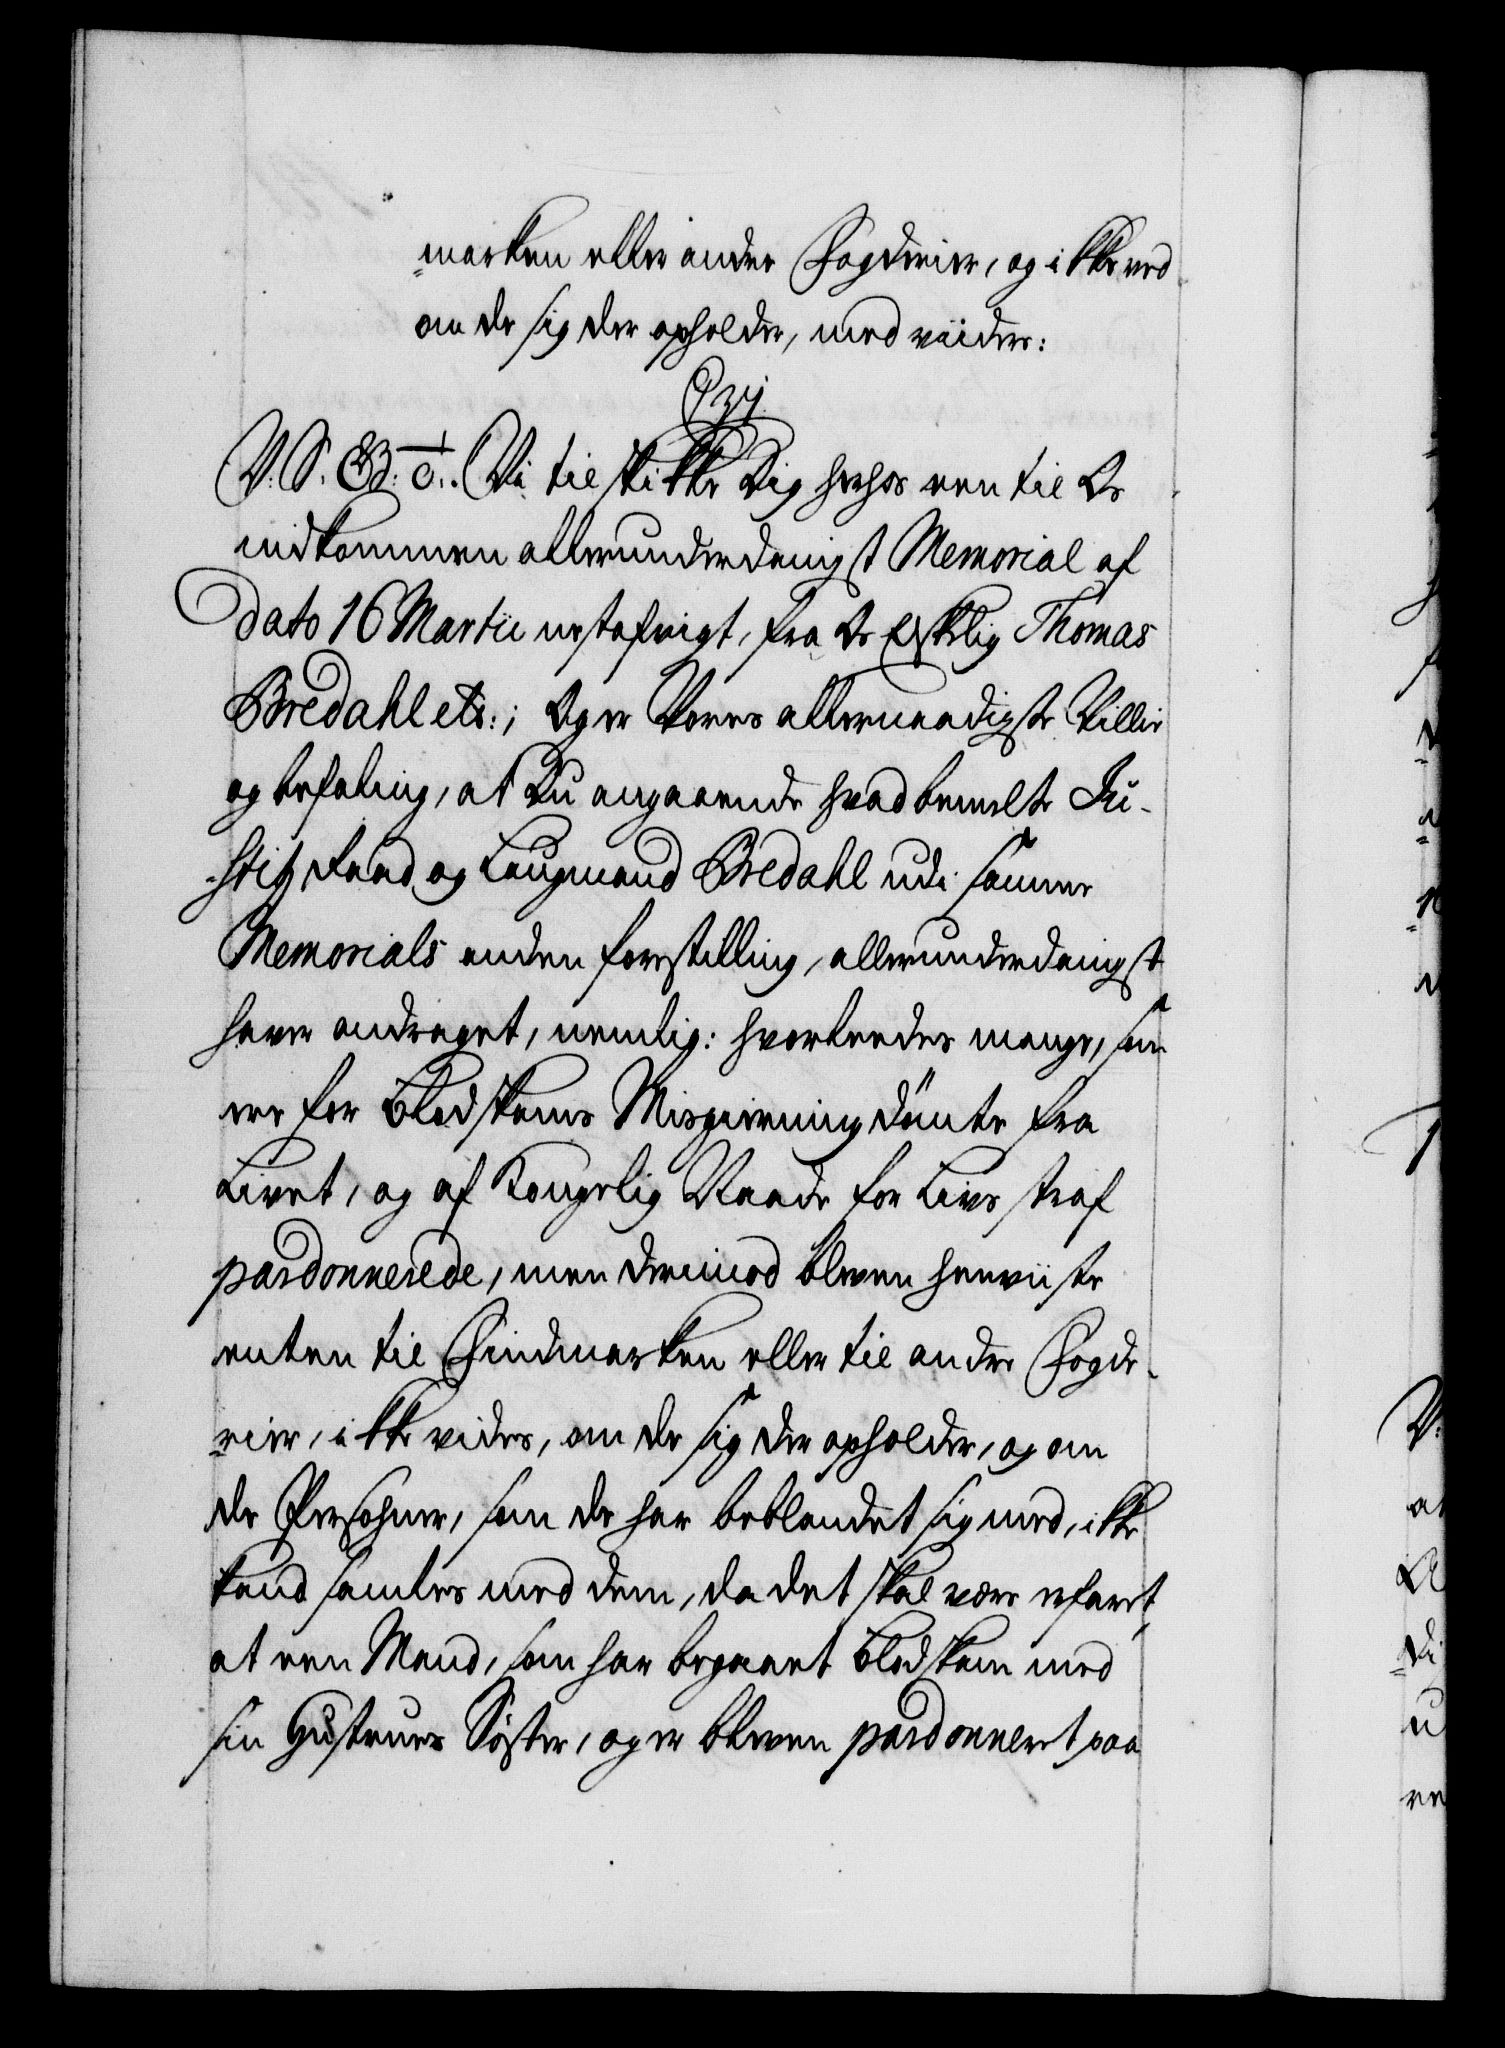 -marken eller andre Fogderier, og ikke ved
om de sig der opholder, med viidere:
V. S. G. T. Vi tilskikke Dig herhos een til Os
indkommen allerunderdanigst Memorial af
dato 16 Martii nestafvigt, fra Os Elskelig Thomas
Bredahl etc:; Og er Vores allernaadigste Villie
og befaling, at Du angaaende hvad bemelte Ju-
-stitz Raad og Laugmand Bredahl udi samme
Memorials anden forestilling, allerunderdanigst
haver andraget, nemlig: hvorledes mange, som
ere for Blodskams Misgierning dömte fra
Livet, og af Kongelig Naade for Livs straf
pardonnerede, men derimod bleven henviiste
enten til Findmarken eller til andre Fogde-
-rier, ikke vides, om de sig der opholder, og om
de Persohner, som de har beblandet sig med, ikke
kand samles med dem, da det skal være erfaret,
at een Mand, som har begaaet Blodskam med
sin Hustrues Söster, og er bleven pardonneret paa